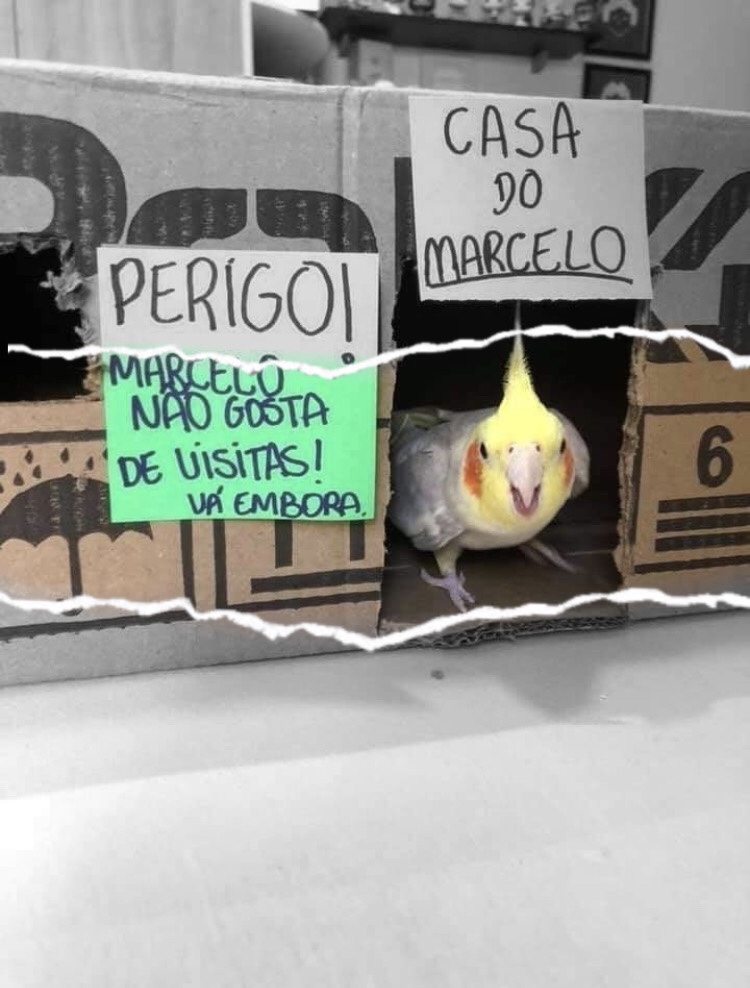 CASA
DO
MARCELO
PERIGO!
MARCELO
NÃO GOSTA
DE VISITAS!
VÁ EMBORA.
6